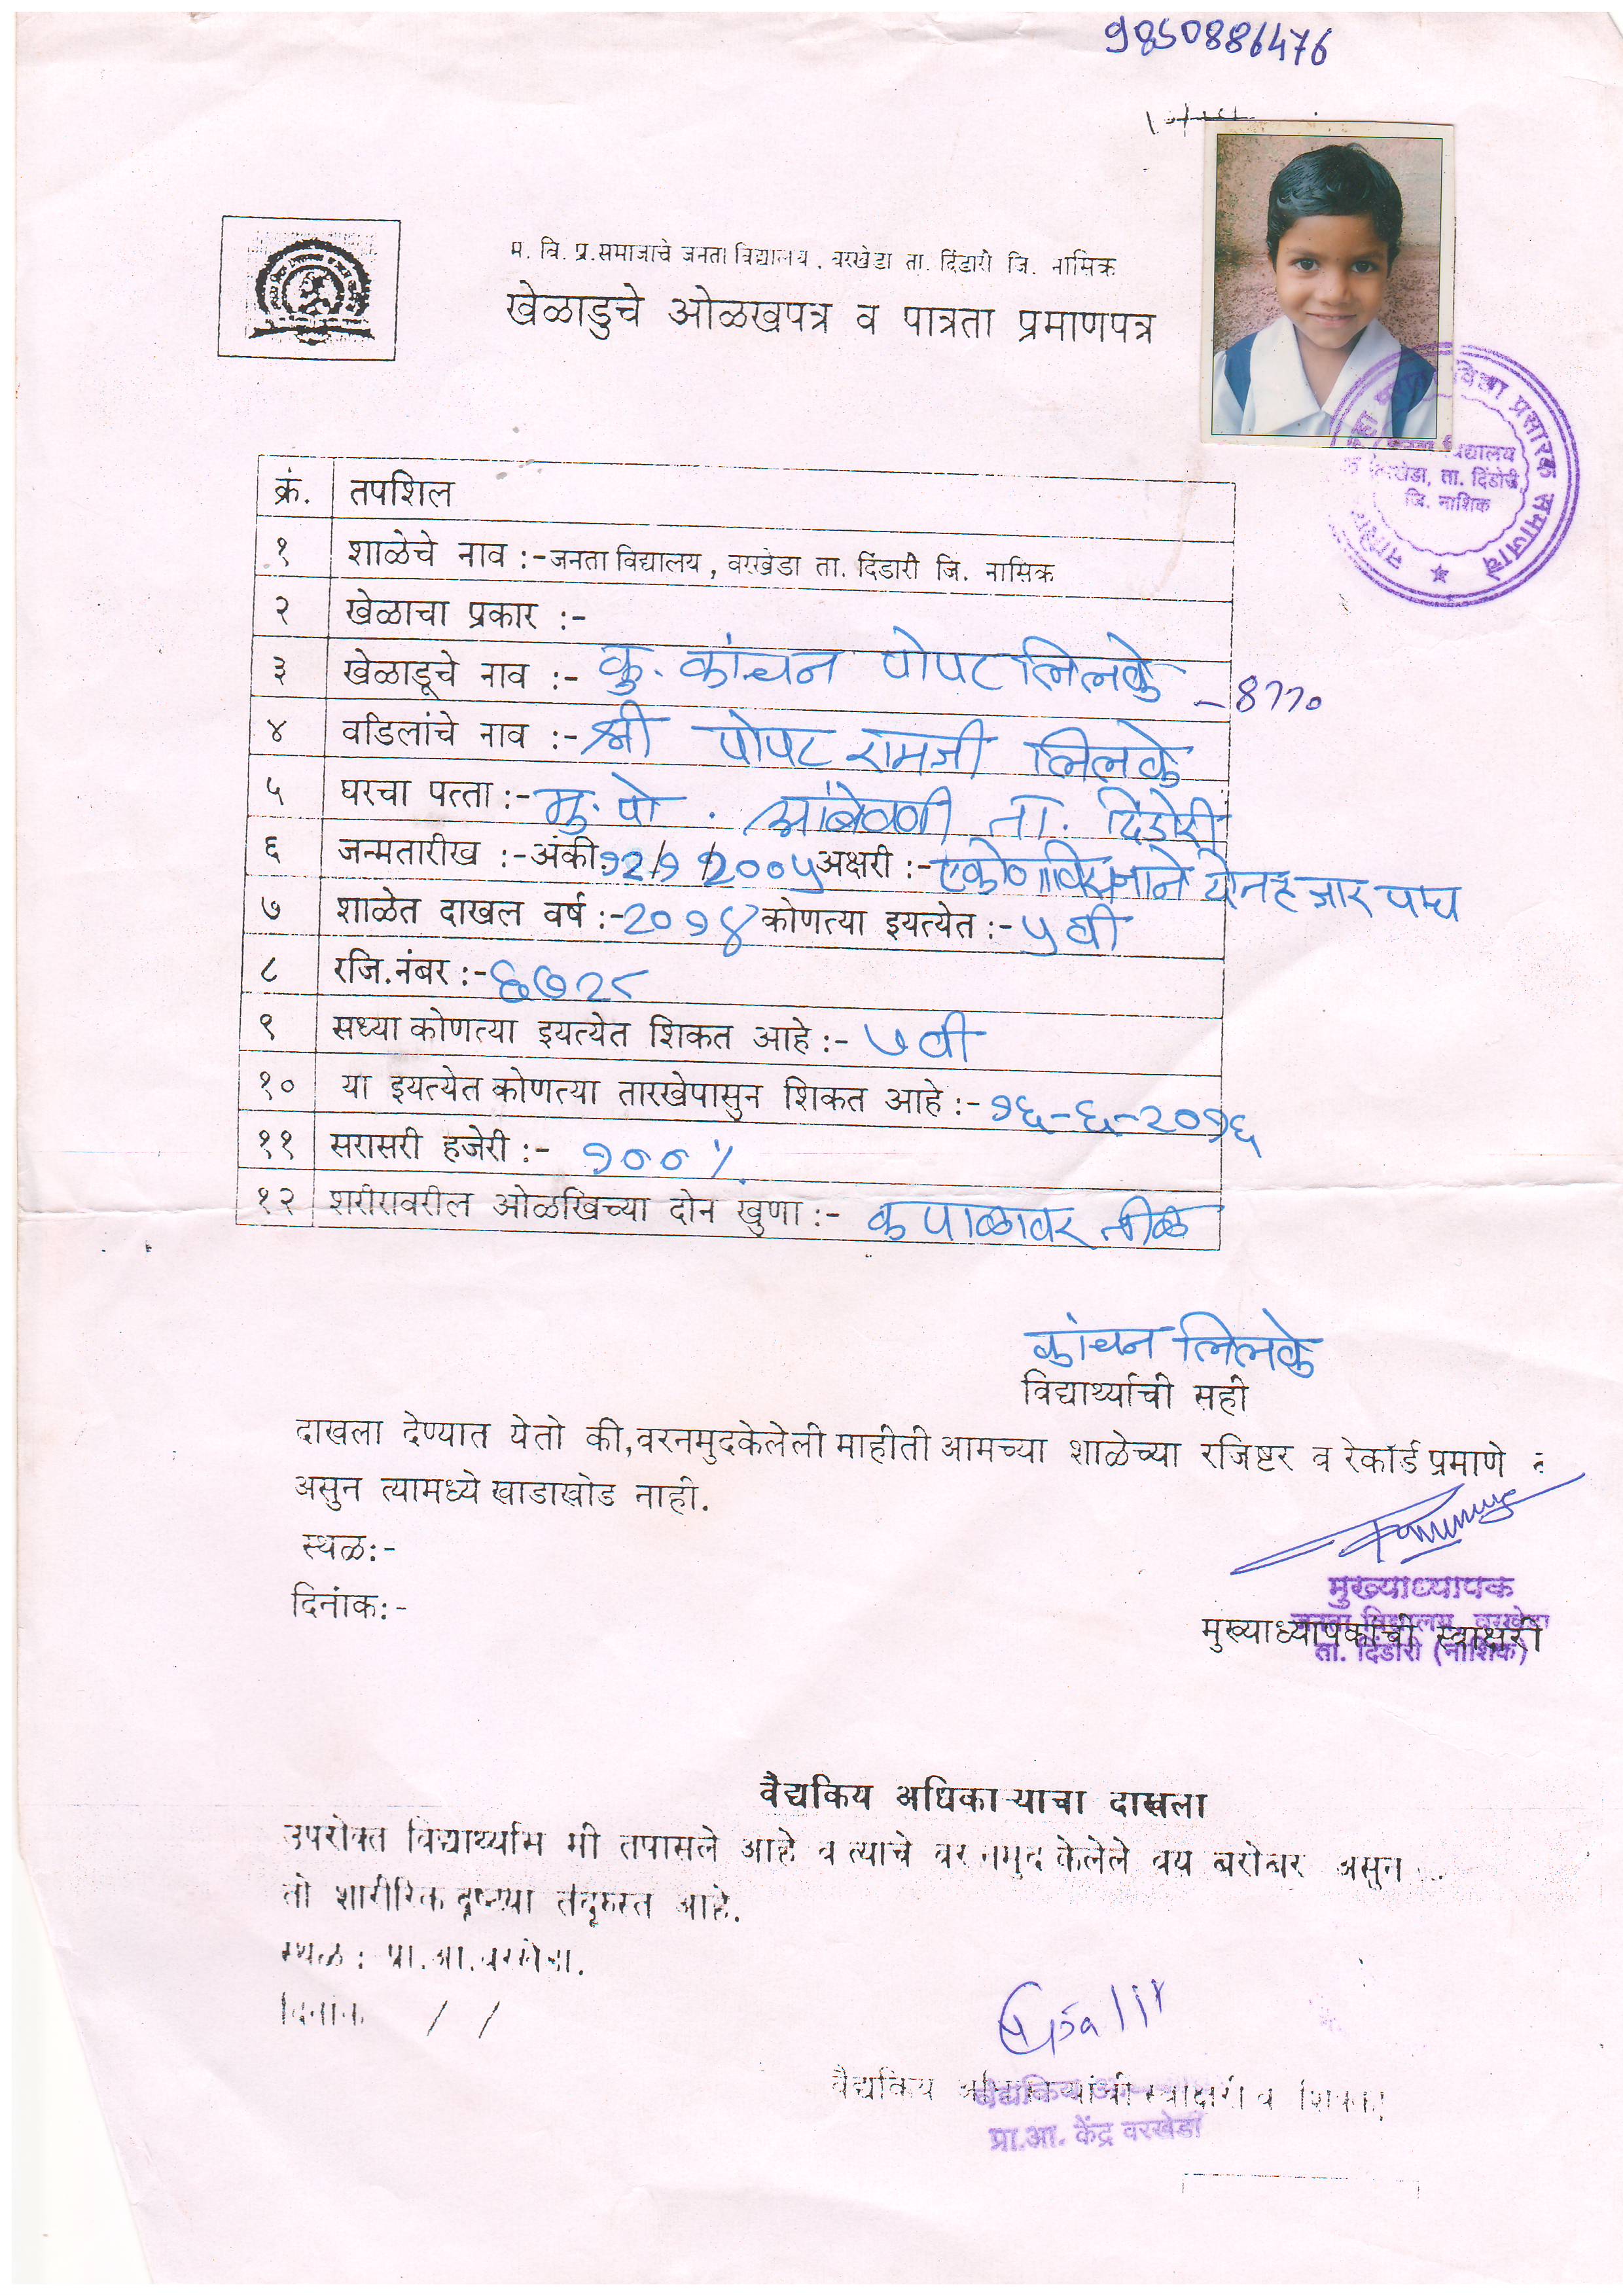 9850886476
म. वि. प्र.समाजाचे जनता विद्यालय, वरखेडा ता. दिंडारी जि. नासिक
खेळाडुचे ओळखपत्र व पात्रता प्रमाणपत्र
विद्या प्रसारक समाजाचे
विद्यालय
वरखेडा, ता. दिंडोरी,
जि. नाशिक
क्रं. तपशिल
१ शाळेचे नाव :-जनता विद्यालय, वरखेडा ता. दिंडारी जि. नासिक
२ खेळाचा प्रकार :-
३ खेळाडूचे नाव :- कु. कांचन पोपट लिलके - 8770
४ वडिलांचे नाव :- श्री पोपट रामजी लिलके
५ घरचा पत्ता :- मु. पो. आंबेवणी ता. दिंडोरी
६ जन्मतारीख :-अंकी १२/१/२००५ अक्षरी :- दोनहजार पाच
७ शाळेत दाखल वर्ष :-२०१४ कोणत्या इयत्येत :- ५ वी
८ रजि.नंबर :- ६७२८
९ सध्या कोणत्या इयत्येत शिकत आहे :- ७ वी
१० या इयत्येत कोणत्या तारखेपासुन शिकत आहे :- १६-६-२०१६
११ सरासरी हजेरी :- १००%
१२ शरीरावरील ओळखिच्या दोन खुणा :- कपाळावर तीळ
कांचन लिलके
विद्यार्थ्याची सही
दाखला देण्यात येतो की,वरनमुदकेलेली माहीती आमच्या शाळेच्या रजिष्टर व रेकॉर्ड प्रमाणे
असुन त्यामध्ये खाडाखोड नाही.
स्थळ:-
दिनांक:-
मुख्याध्यापक
जनता विद्यालय, वरखेडा
मुख्याध्यापकांची स्वाक्षरी
ता. दिंडोरी (नाशिक)
वैद्यकिय अधिका-याचा दाखला
उपरोक्त विद्यार्थ्यास मी तपासले आहे व त्याचे वर नमुद केलेले वय बरोबर असुन
तो शारीरिक दृष्ट्या तंदुरुस्त आहे.
स्थळ : प्रा.आ.वरखेडा.
दिनांक / /
वैद्यकिय अधिका-यांची स्वाक्षरी व शिक्का
प्रा.आ. केंद्र वरखेडा